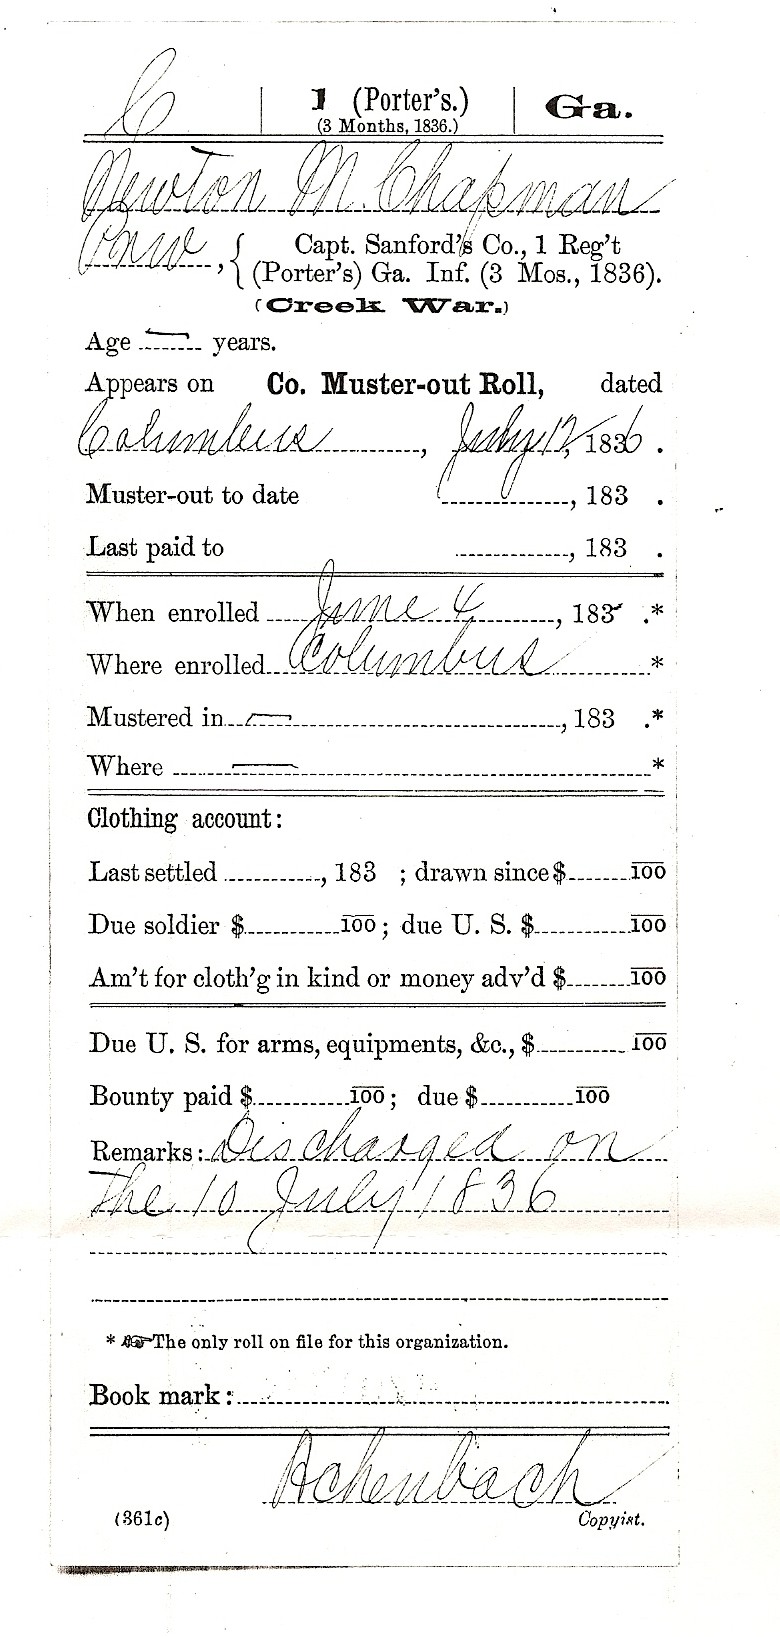 C | 1 (Porter's.) | Ga.
(3 Months, 1836.)
Newton M. Chapman
Priv, { Capt. Sanford's Co., 1 Reg't
(Porter's) Ga. Inf. (3 Mos., 1836).
(Creek War.)
Age — years.
Appears on Co. Muster-out Roll, dated
Columbus, July 12, 1836.
Muster-out to date , 183 .
Last paid to , 183 .
When enrolled June 4, 183 .*
Where enrolled Columbus *
Mustered in — , 183 .*
Where — *
Clothing account:
Last settled , 183 ; drawn since $ 100
Due soldier $ 100; due U. S. $ 100
Am't for cloth'g in kind or money adv'd $ 100
Due U. S. for arms, equipments, &c., $ 100
Bounty paid $ 100; due $ 100
Remarks: Discharged on
the 10 July 1836
* ☞ The only roll on file for this organization.
Book mark:
Achenbach
(361c) Copyist.